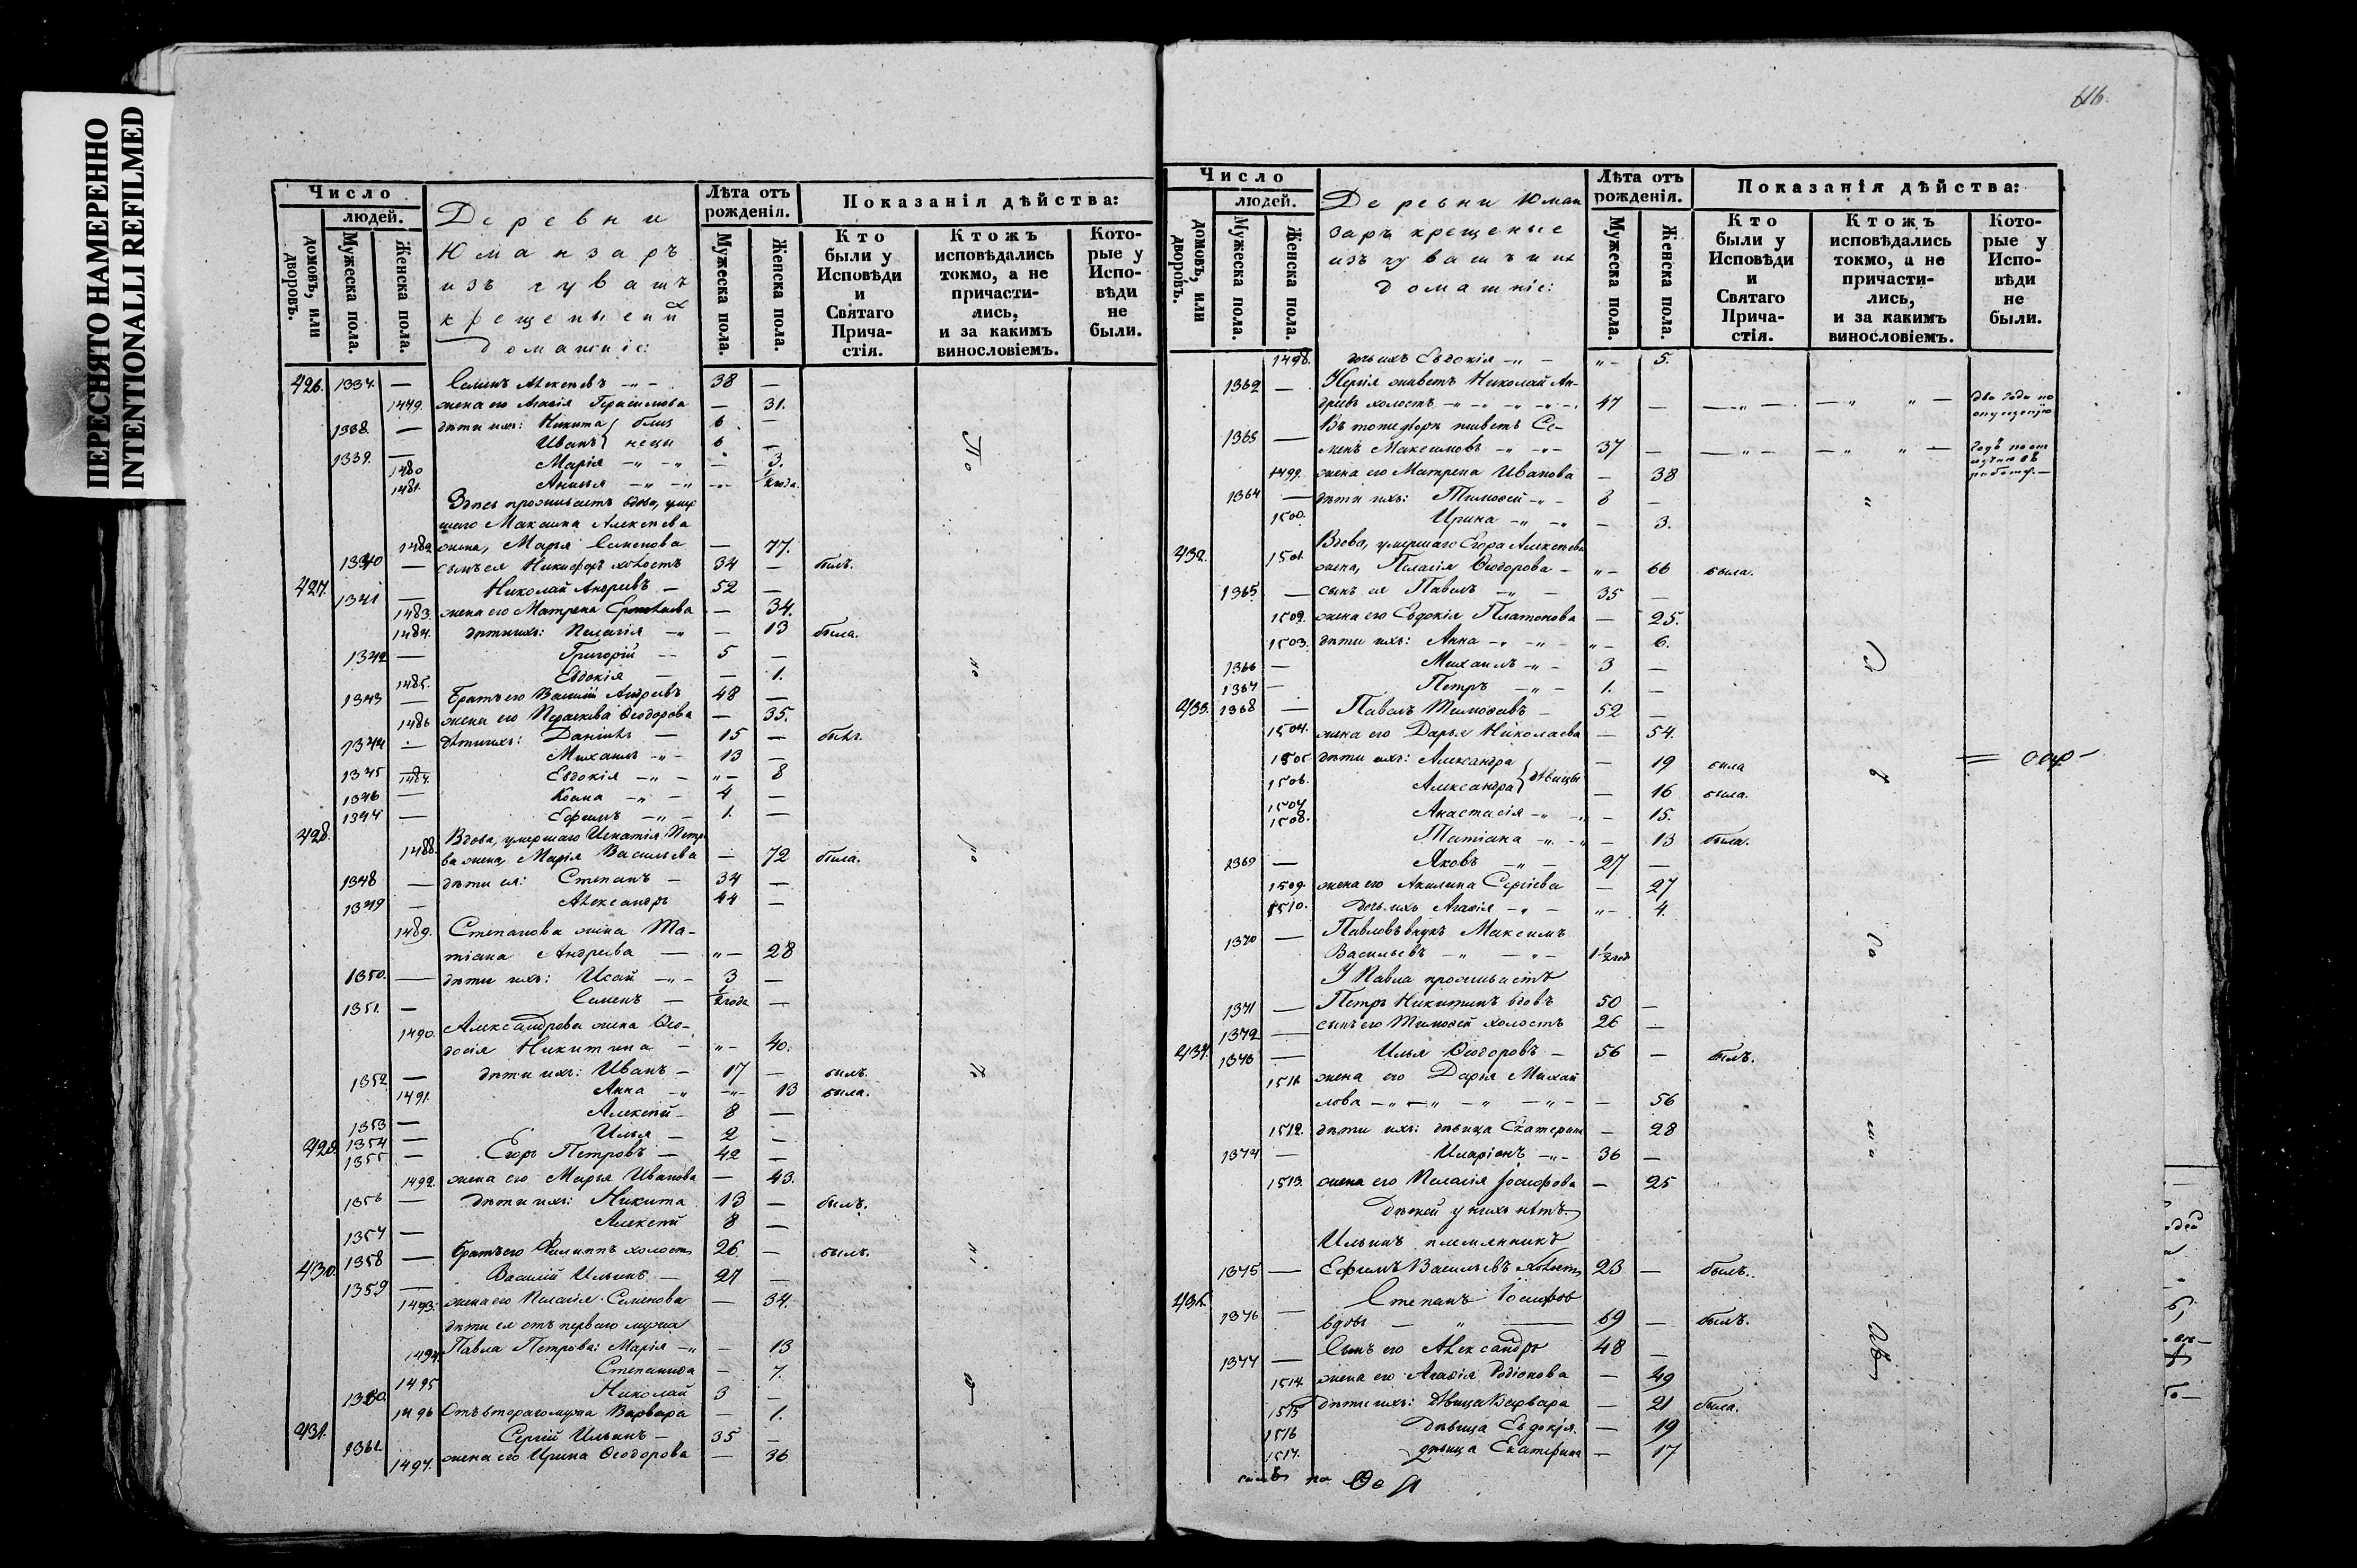 ПЕРЕСНЯТО НАМЕРЕННО
INTENTIONALLI REFILMED
Число
домовъ, или дворовъ.
людей.
Мужеска пола.
Женска пола.
Деревни
Юманзаръ
изъ чувашъ
крещеные
домашніе:
Лѣта отъ рожденія.
Мужеска пола.
Женска пола.
Показанія дѣйства:
Кто были у Исповѣди и Святаго Прича-стія.
Ктожъ исповѣдались токмо, а не причасти-лись, и за какимъ винословіемъ.
Кото-рые у Испо-вѣди не были.
426. 1337. — Семенъ Алексѣевъ 38 —
1479. жена его Агафія Герасимова — 31.
1338. — дѣти ихъ: Никита близ 6 —
1339. — Иванъ нецы 6 —
1480 Марія — 3.
1481. Анисья —
Здѣсь проживаетъ вдова, умер
шаго Максима Алексѣева
1482 жена, Марья Семенова — 77.
1340 — сынъ ея Никифоръ холостъ 34 — былъ.
427. 1341 — Николай Андреевъ — 52 —
1483. жена его Матрена — 34.
1484. дѣти ихъ: Пелагія — 13 была.
1342 — Григорій 5 —
1485. Евдокія — 1.
1343 — Братъ его Василій Андреевъ 48 —
1486 жена его Параскева Ѳеодорова — 35.
1344 — дѣти ихъ: Даніилъ — 15 — былъ.
Михаилъ 13 —
1345 1487. Евдокія — 8
1346 — Косма 4 —
1347 — Ефимъ 1. —
428. Вдова, умершаго Игнатія Петро
1488. ва жена, Марія Васильева — 72 была.
1348 — дѣти ея: Степанъ — 34 —
1349 — Александръ 44 —
1489. Степанова жена Та-
тіана Андреева — 28
1350. — дѣти ихъ: Исай 3 —
1351. — Семенъ — 1/2 года —
1490. Александрова жена Ѳео-
досія Никитина — 40.
1352 — дѣти ихъ: Иванъ — 17 — былъ.
1491. Анна 13 была.
1353 — Алексѣй 8 —
1354 — Илья — 2 —
429. 1355 — Егоръ Петровъ — 42 —
1492. жена его Марья Иванова — 43.
1356 — дѣти ихъ: Никита 13 — былъ.
1357 — Алексѣй 8 —
1358 — братъ его Филиппъ холостъ 26 — былъ.
430. 1359 — Василій Ильинъ — 27 —
1493. жена его Пелагія Семенова — 34.
дѣти ея отъ перваго мужа
1494. Павла Петрова: Марія — 13
1495 Степанида — 7.
1360. Николай 3 —
1496 Отъ втораго мужа Варвара — 1.
431. 1361. Сергій Ильинъ — 35 —
1497. жена его Ирина Ѳеодорова — 36
Число
домовъ, или дворовъ.
людей.
Мужеска пола.
Женска пола.
Деревни Юман
заръ крещеные
изъ чувашъ и ихъ
домашніе:
Лѣта отъ рожденія.
Мужеска пола.
Женска пола.
Показанія дѣйства:
Кто были у Исповѣди и Святаго Прича-стія.
Ктожъ исповѣдались токмо, а не причасти-лись, и за какимъ винословіемъ.
Кото-рые у Испо-вѣди не были.
1498. дочь ихъ Евдокія 5.
1362 — живетъ Николай Ан-
дреевъ холостъ 47 — два года по опущенію
Въ томъ дворѣ живетъ Се-
1363 — менъ Максимовъ 37 —
1499. жена его Матрена Иванова — 38
1364 — дѣти ихъ: Тимоѳей 8 —
1500. Ирина — 3.
432. Вдова, умершаго Егора Алексѣева
1501. жена, Пелагія Ѳеодорова — 66 была.
1365 — сынъ ея Павелъ 35 —
1502. жена его Евдокія Платонова — 25.
1503. дѣти ихъ: Анна 6.
1366 — Михаилъ 3 —
1367 — Петръ 1. —
433. 1368 — Павелъ Тимоѳеевъ 52 —
1504. жена его Дарья Николаева — 54.
1505 дѣти ихъ: Александра — 19 была
1506. Александра дѣвицы — 16 была.
1507 Анастасія — 15.
1508. Татіана — 13 была.
1369 — Яковъ 27 —
1509. жена его Акилина Сергіева — 27
1510. дочь ихъ Агафія 4.
1370 — Павловъ внукъ Максимъ
Васильевъ 1 1/2 год
У Павла проживаетъ
1371 — Петръ Никитинъ вдовъ 50 —
1372 — сынъ его Тимоѳей холостъ 26 —
434. 1373 — Илья Ѳеодоровъ — 56 — былъ.
1511. жена его Дарья Михай
лова — 56
1512. дѣти ихъ: дѣвица Екатерина — 28
1374 — Иларіонъ 36 —
1513. жена его Пелагія Іосифова — 25
Дѣтей у нихъ нѣтъ.
Ильинъ племянникъ
1375 — Ефимъ Васильевъ холостъ 23 — былъ.
435. Степанъ Іосифовъ
1376 — вдовъ 69 — былъ.
1377 — Сынъ его Александръ 48 —
1514. жена его Агафія Родіонова — 49
1515 дѣти ихъ: дѣвица Варвара — 21 была.
1516 дѣвица Евдокія. — 19
1517. дѣвица Екатерина — 17